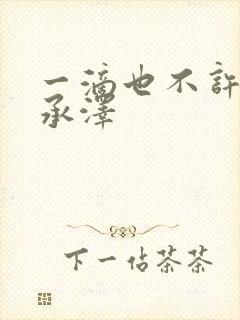 一滴也不许
承泽
下一佔茶茶